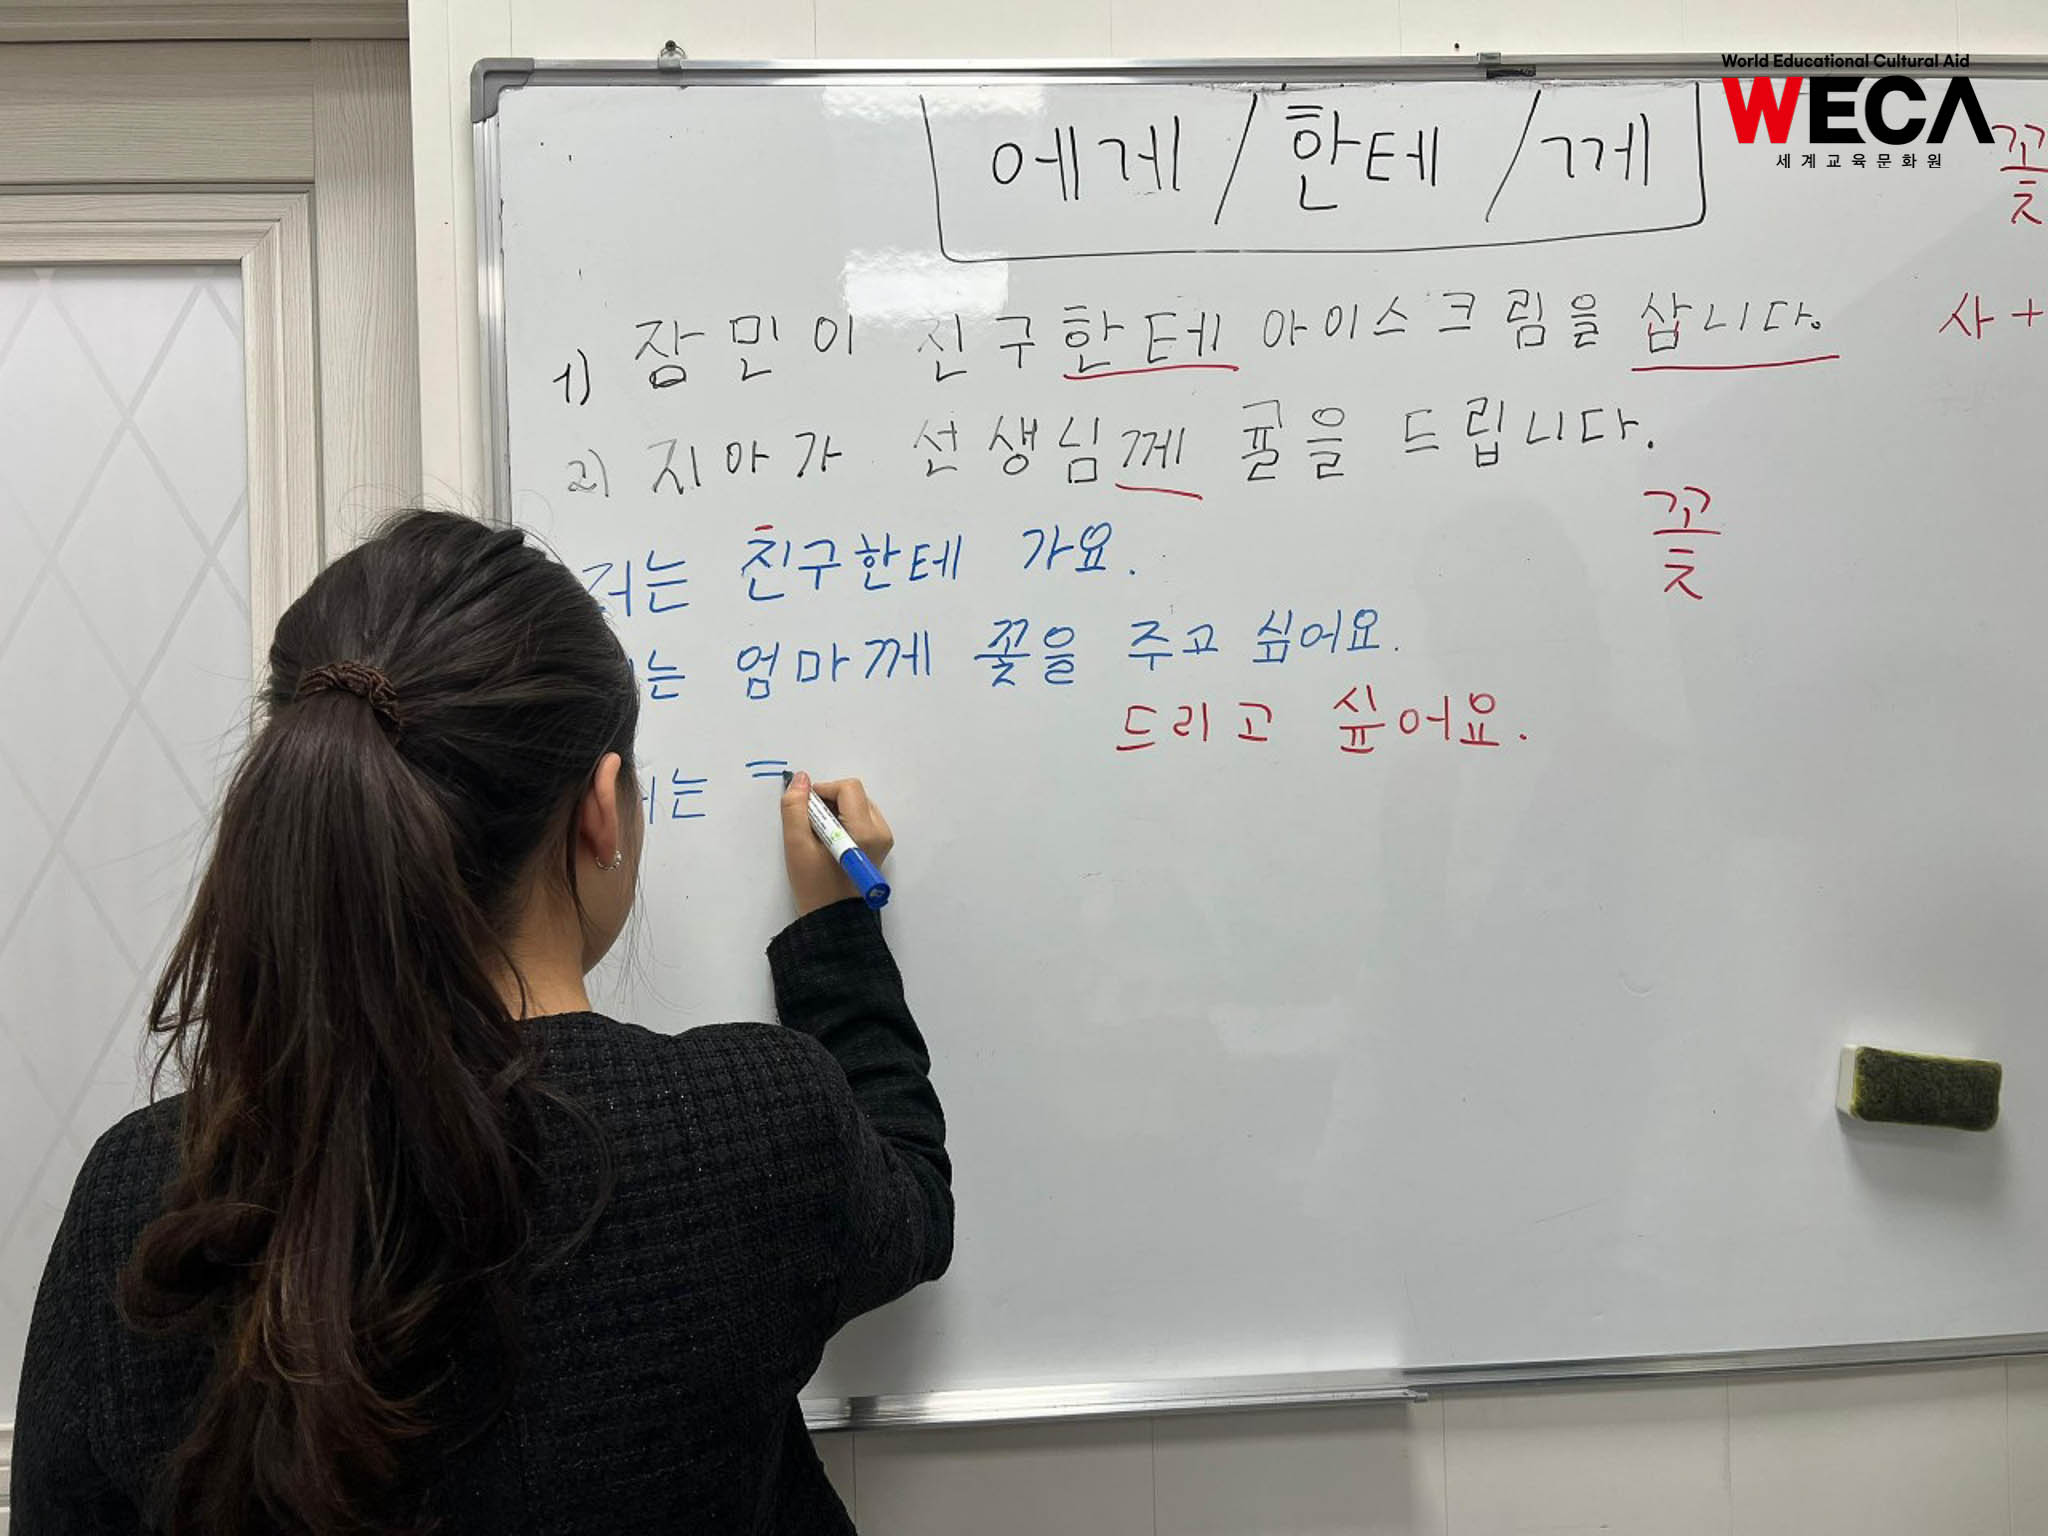 World Educational Cultural Aid
WECA
세계교육문화원
에게/한테/께
꼬
ㅊ
1) 장민이 친구한테 아이스크림을 삽니다.
사+
2) 지아가 선생님께 귤을 드립니다.
꼬
ㅊ
저는 친구한테 가요.
는 엄마께 꽃을 주고 싶어요.
드리고 싶어요.
는